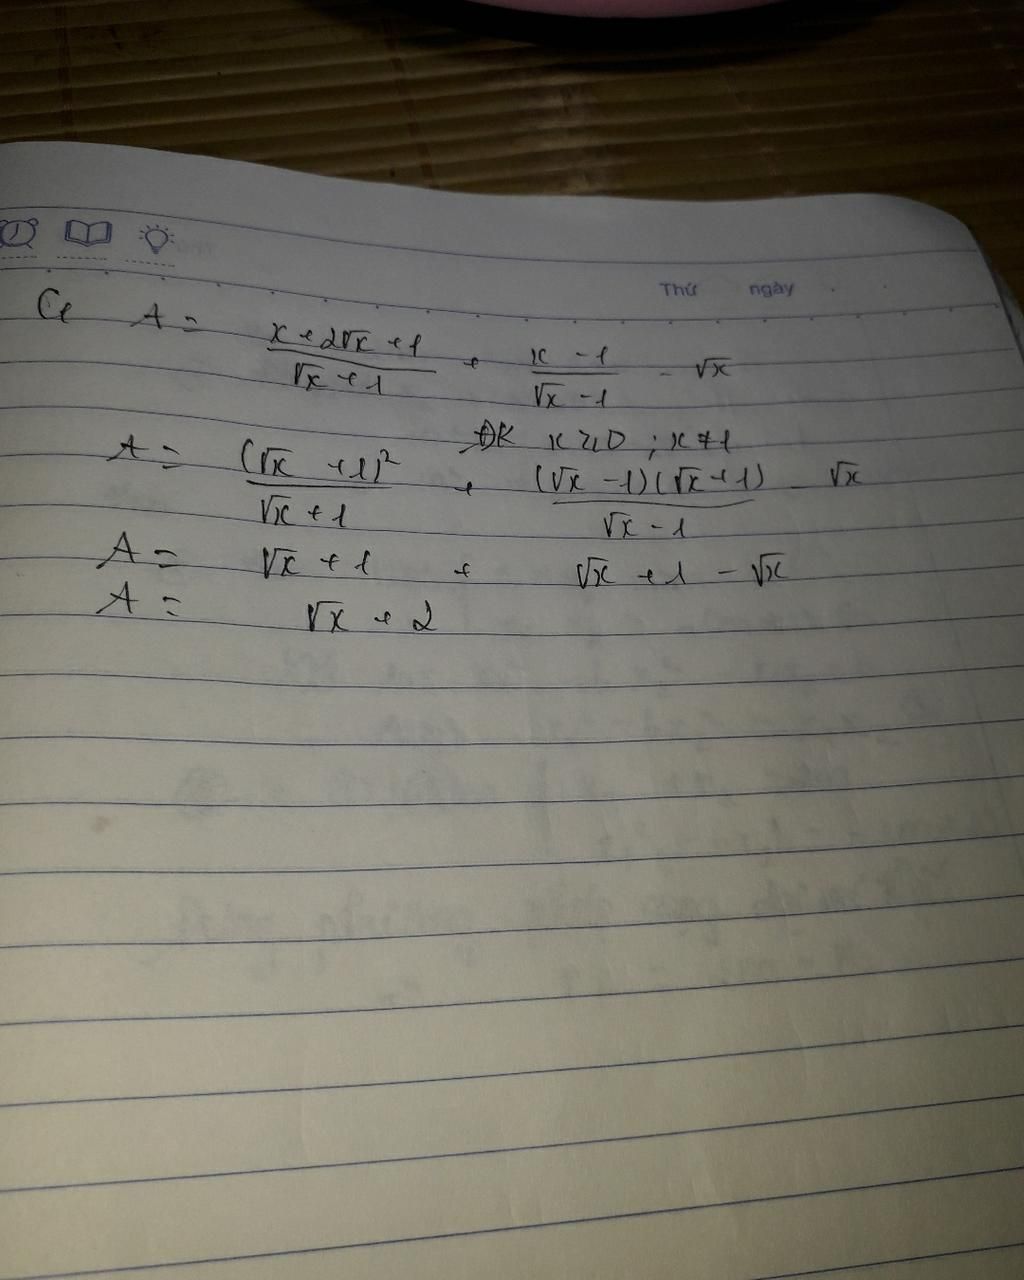 Thứ ngày
C₁ A = \frac{x + 2√x + 1}{√x + 1} + \frac{x - 1}{√x - 1} - √x
ĐK x ≥ 0 ; x ≠ 1
A = \frac{(√x + 1)²}{√x + 1} + \frac{(√x - 1)(√x + 1)}{√x - 1} - √x
A = √x + 1 + √x + 1 - √x
A = √x + 2